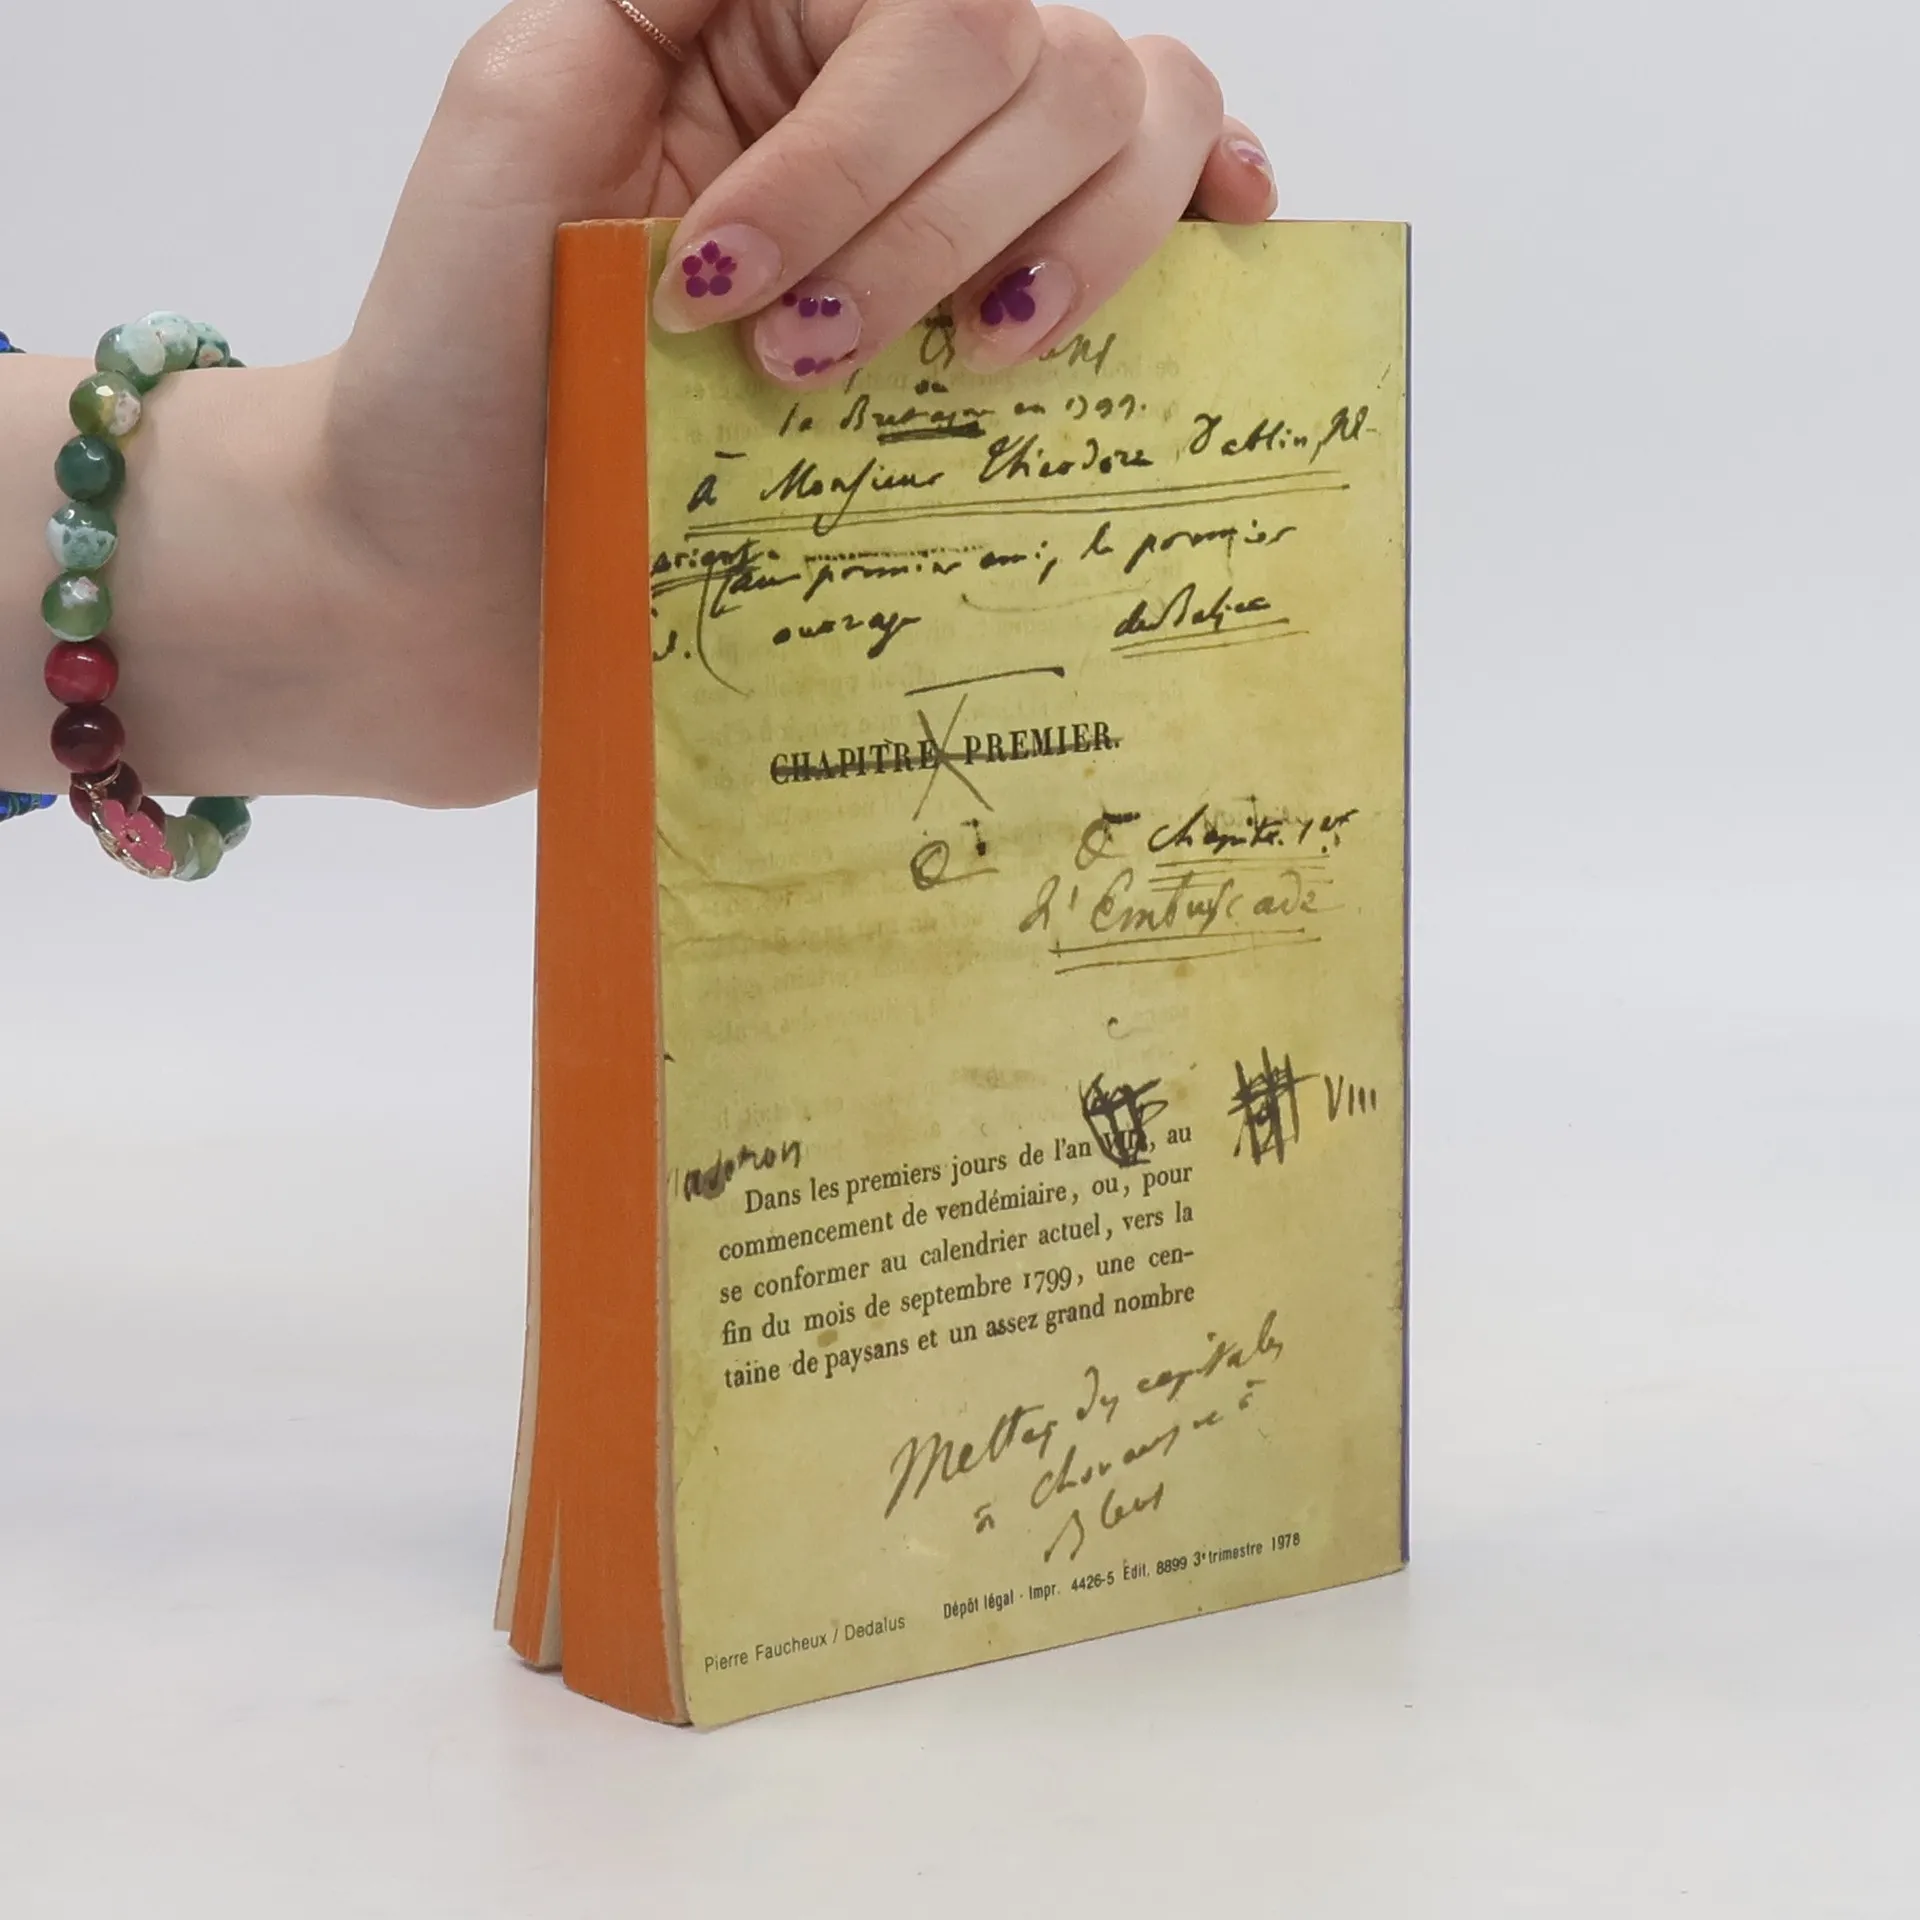 la Bretagne en 1799.
À Monsieur Théodore Dablin,
au premier ami, le premier
ouvrage de Balzac
CHAPITRE PREMIER.
Chapitre 1er
L'Embuscade
VIII
Dans les premiers jours de l'an VIII, au
commencement de vendémiaire, ou, pour
se conformer au calendrier actuel, vers la
fin du mois de septembre 1799, une cen-
taine de paysans et un assez grand nombre
Mettez des capitales
à chouans et à
Bleus
Dépôt légal - Impr. 4426-5 Edit. 8899 3e trimestre 1978
Pierre Faucheux / Dedalus